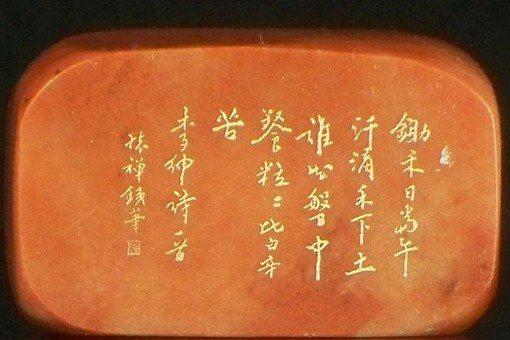 鋤禾日當午
汗滴禾下土
誰知盤中
餐粒〻皆辛
苦
李紳詩一首
禪 華